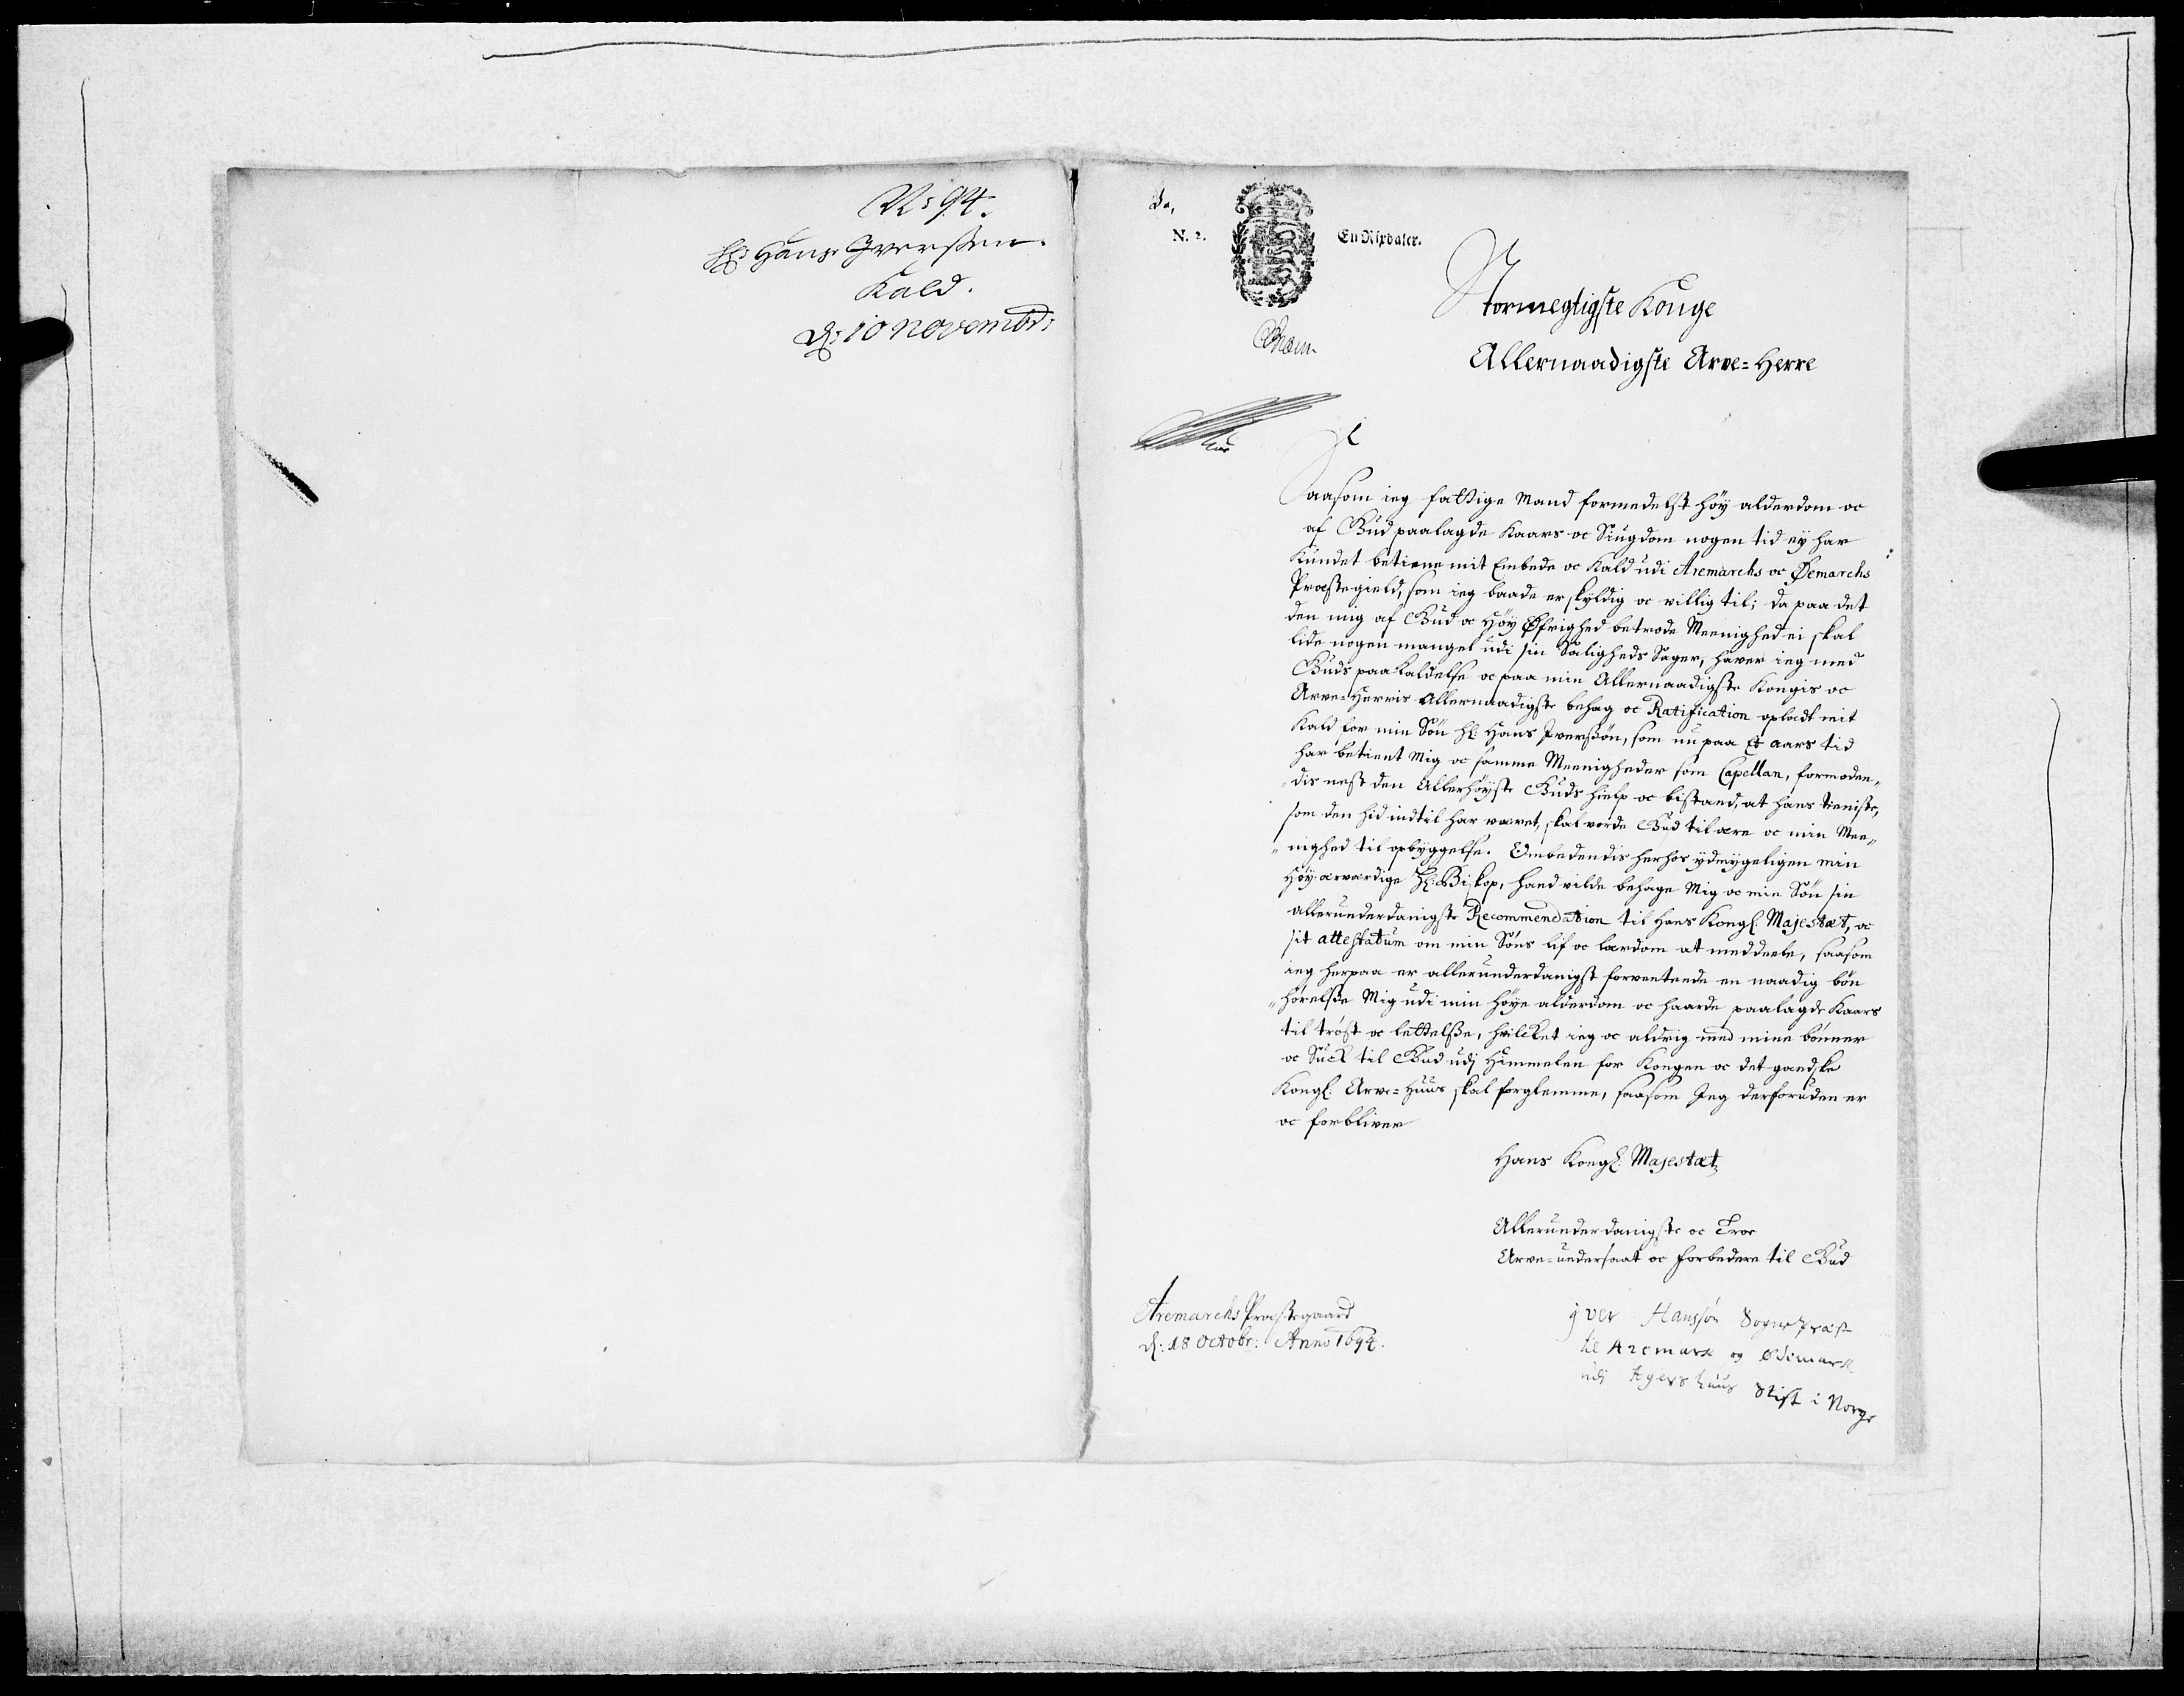 No 94.
Hr: Hans Iverssen
Kald.
d: 10 Novembr:
N. 2.
En Rixdaler.
Stormegtigste Konge
Allernaadigste Arve-Herre
Saasom ieg fattige Mand formedelst høy alderdom oc
af Gud paalagde Kaars oc Siugdom nogen tid ey har
kundet betiene mit Embede oc Kald udi Aremarchs oc Ødemarchs
Præstegield, som ieg baade er skyldig oc villig til; da paa det
den mig af Gud oc Høy Øfrighed betrode Meenighed ei skal
lide nogen mangel udi sin Saligheds Sager, haver ieg med
Guds paakaldelse oc paa min Allernaadigste Kongis oc
Arve-Herris Allernaadigste behag oc Ratification opladt mit
Kald for min Søn Hr: Hans Iverssøn, som nu paa Et aars tid
har betient Mig oc samme Meenigheder som Capellan, formoden„
„dis nest den Allerhøyste Guds hielp oc bistand, at hans tieniste,
som den hid indtil har været, skal vorde Gud til ære oc min Mee„
„nighed til opbyggelse. Ombedendis herhos ydmygeligen min
Høyærværdige Hr: Biskop, hand vilde behage Mig oc min Søn sin
allerunderdanigste Recommendation til Hans Kongl: Majestæt, oc
sit attestatum om min Søns lif oc lærdom at meddeele, saasom
ieg herpaa er allerunderdanigst forventende en naadig bøn
„hørelsse Mig udi min høye alderdom oc haarde paalagde Kaars
til trøst oc lettelsse, hvilcket ieg oc aldrig med mine bønner
oc Suck til Gud udj Himmelen for Kongen oc det gandske
Kongl: Arve-Huus skal forglemme, saasom Jeg derforuden er
oc forbliver
Hans Kongl: Majestæt
Allerunderdanigste oc Troe
Arve-undersaat oc forbedere til Gud
Aremarchs Præstegaard
d: 18 Octobr: Anno 1694.
yver Hanssøn Sogne Præst
til Aremark og Ødemark
udj Agershuus Stift i Norge